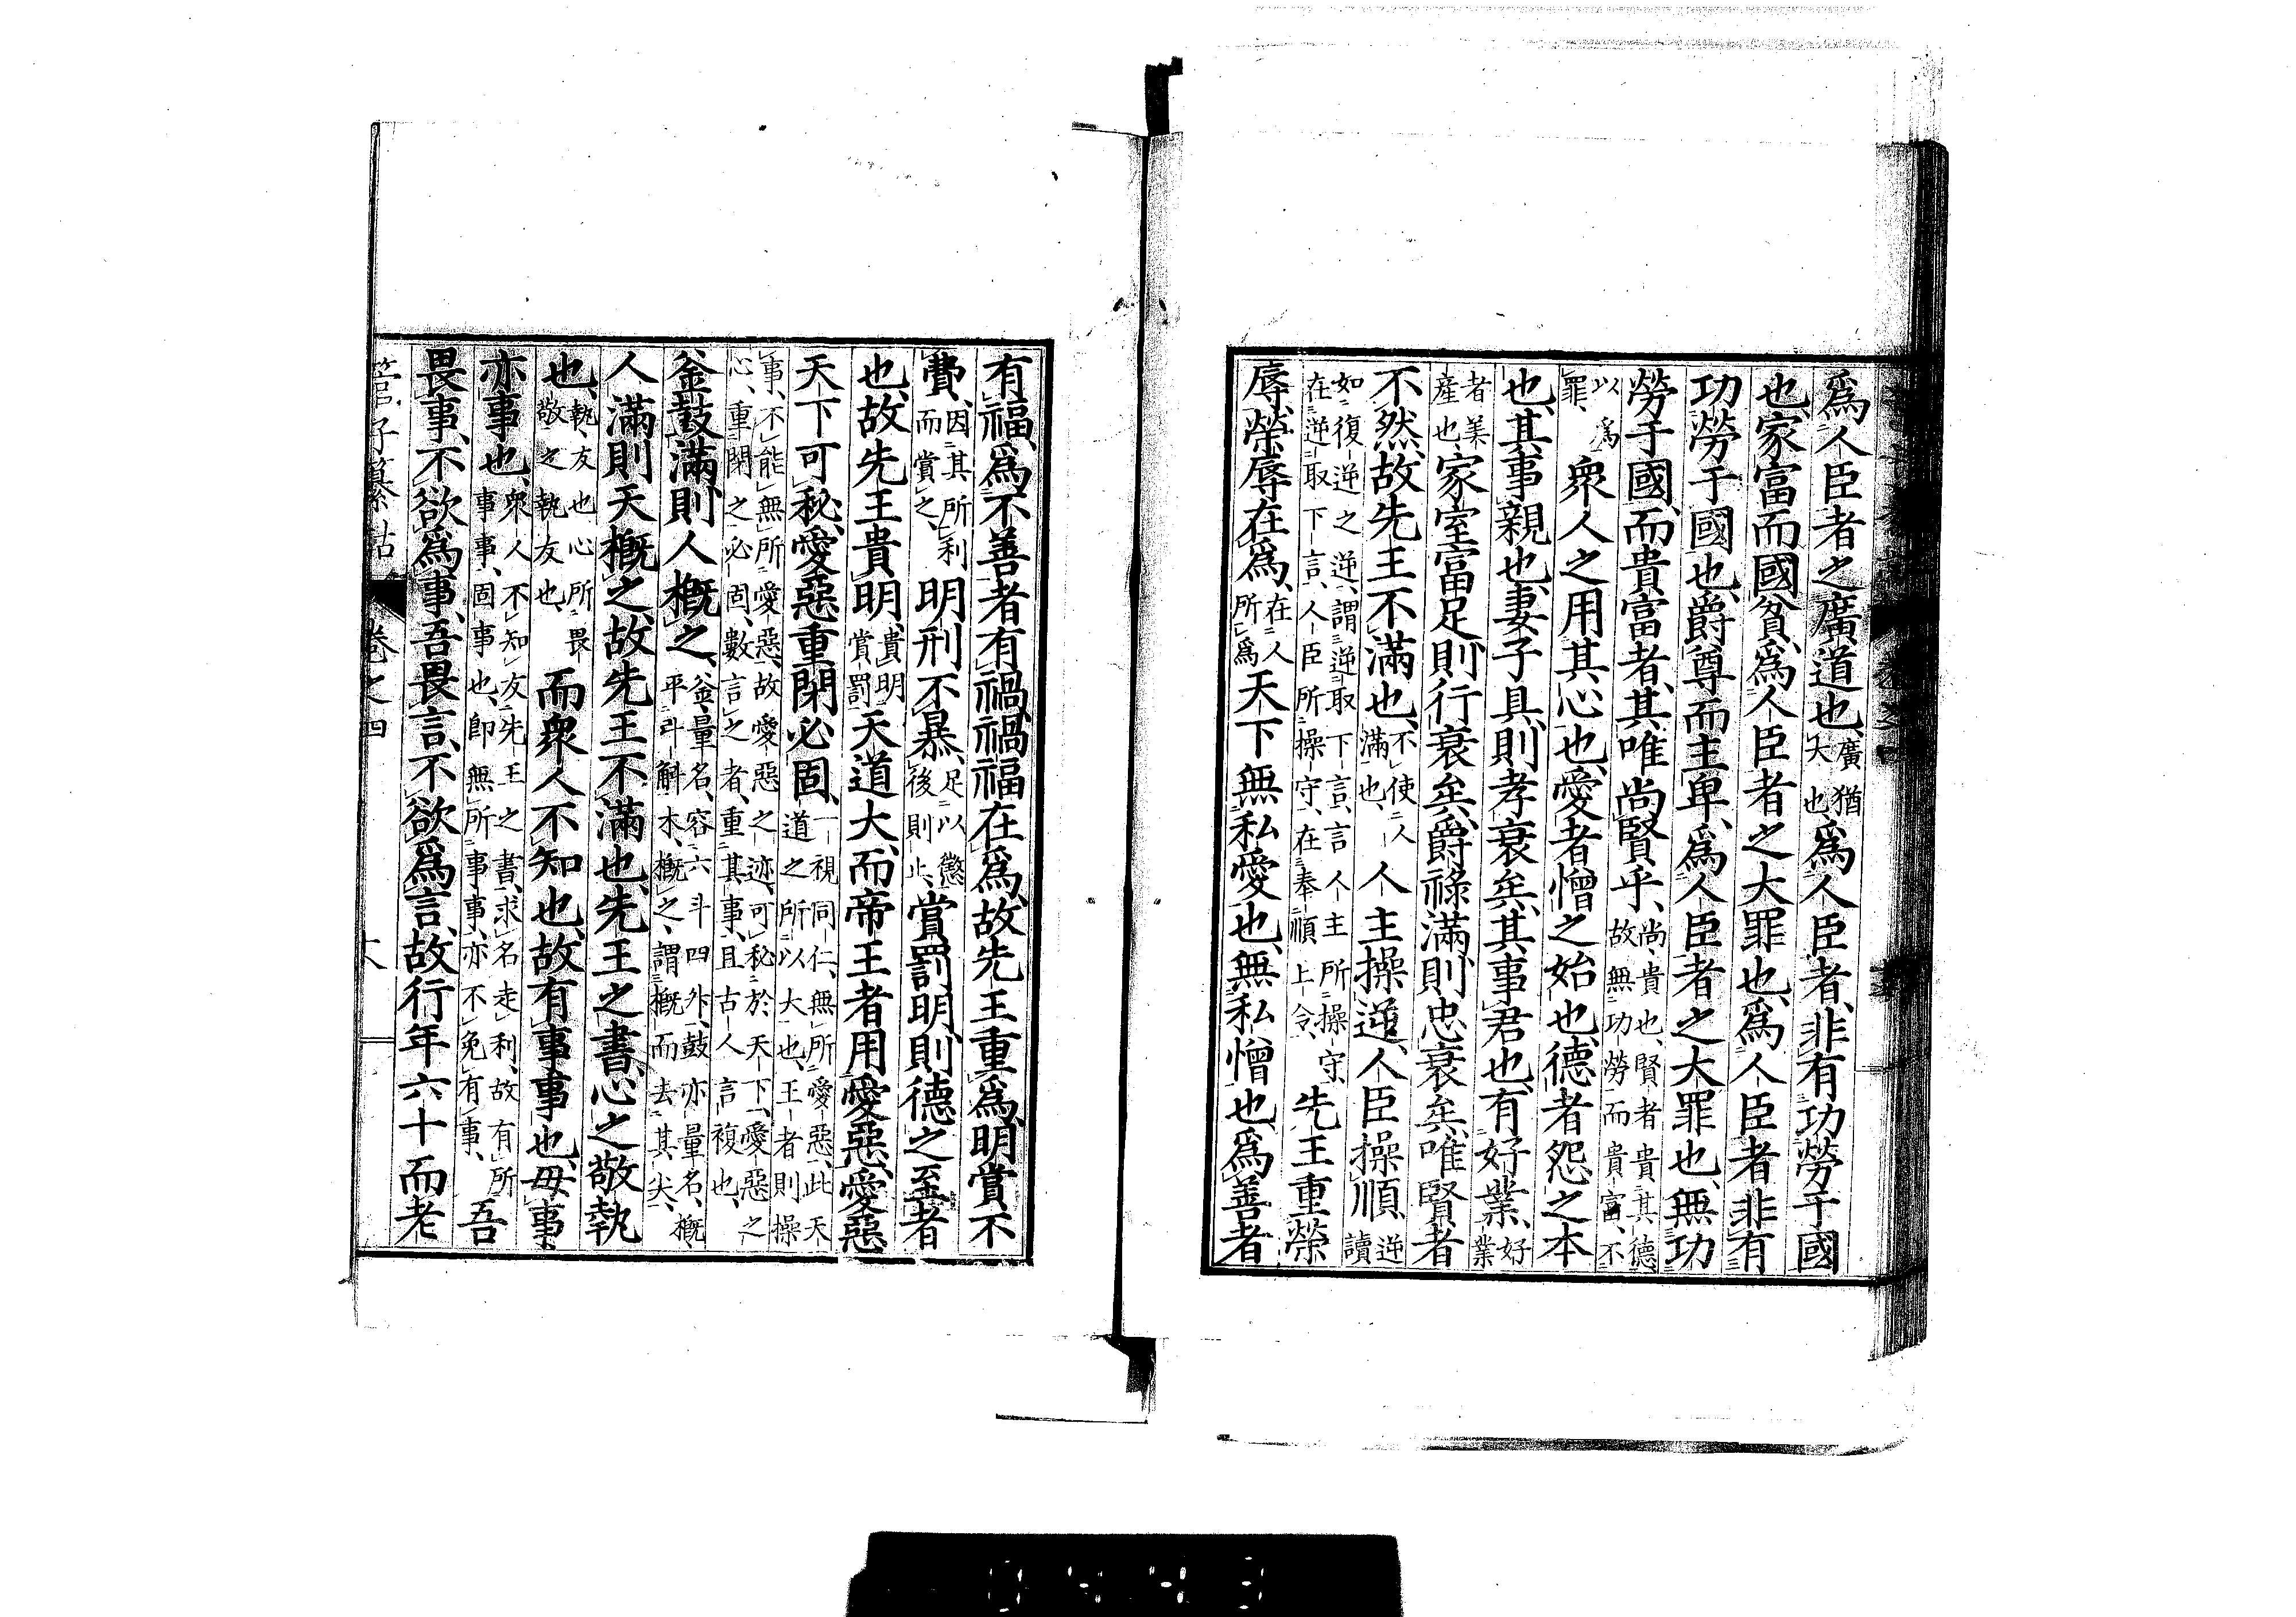 爲人臣者之廣道也、廣猶大也、爲人臣者、非有功勞于國
也、家富而國貧、爲人臣者之大罪也、爲人臣者、非有
功勞于國也、爵尊而主卑、爲人臣者之大罪也、無功
勞于國、而貴富者、其唯尚賢乎、尚、貴也、賢者貴其德、故無功勞而貴富、不
以爲罪、衆人之用其心也、愛者憎之始也、德者怨之本
也、其事親也、妻子具、則孝衰矣、其事君也、有好業、好業
者美產也、家室富足、則行衰矣、爵祿滿、則忠衰矣、唯賢者
不然、故先王不滿也、不使人滿也、人主操逆、人臣操順、逆讀
如復逆之逆、謂逆取下言、言人主所操守、在逆取下言、人臣所操守、在奉順上令、先王重榮
辱、榮辱在爲、在人所爲天下無私愛也、無私憎也、爲善者
有福、爲不善者有禍、禍福在爲、故先王重爲、明賞不
費、因其所利而賞之、明刑不暴、足以懲後則止、賞罰明、則德之至者
也、故先王貴明、貴明賞罰天道大、而帝王者用愛惡、愛惡
天下可秘、愛惡重閉必固、一視同仁、無所愛惡、此天道之所以大也、王者則操
事、不能無所愛惡、故愛惡之迹、可秘於天下、愛惡之心、重閉之必固、數言之者、重其事、且古人言複也、
釜鼓滿、則人概之、釜、量名、容六斗四升、鼓亦量名、概、平斗斛木、概之、謂概而去其尖、
人滿、則天概之、故先王不滿也、先王之書、心之敬執
也、執、友也、心所畏敬之執友也、而衆人不知也、故有事事也、毋事
亦事也、衆人不知友先王之書、求名走利、故有所事事、固事也、卽無所事事、亦不免有事、吾
畏事、不欲爲事、吾畏言、不欲爲言、故行年六十而老
管子纂詁 卷之四